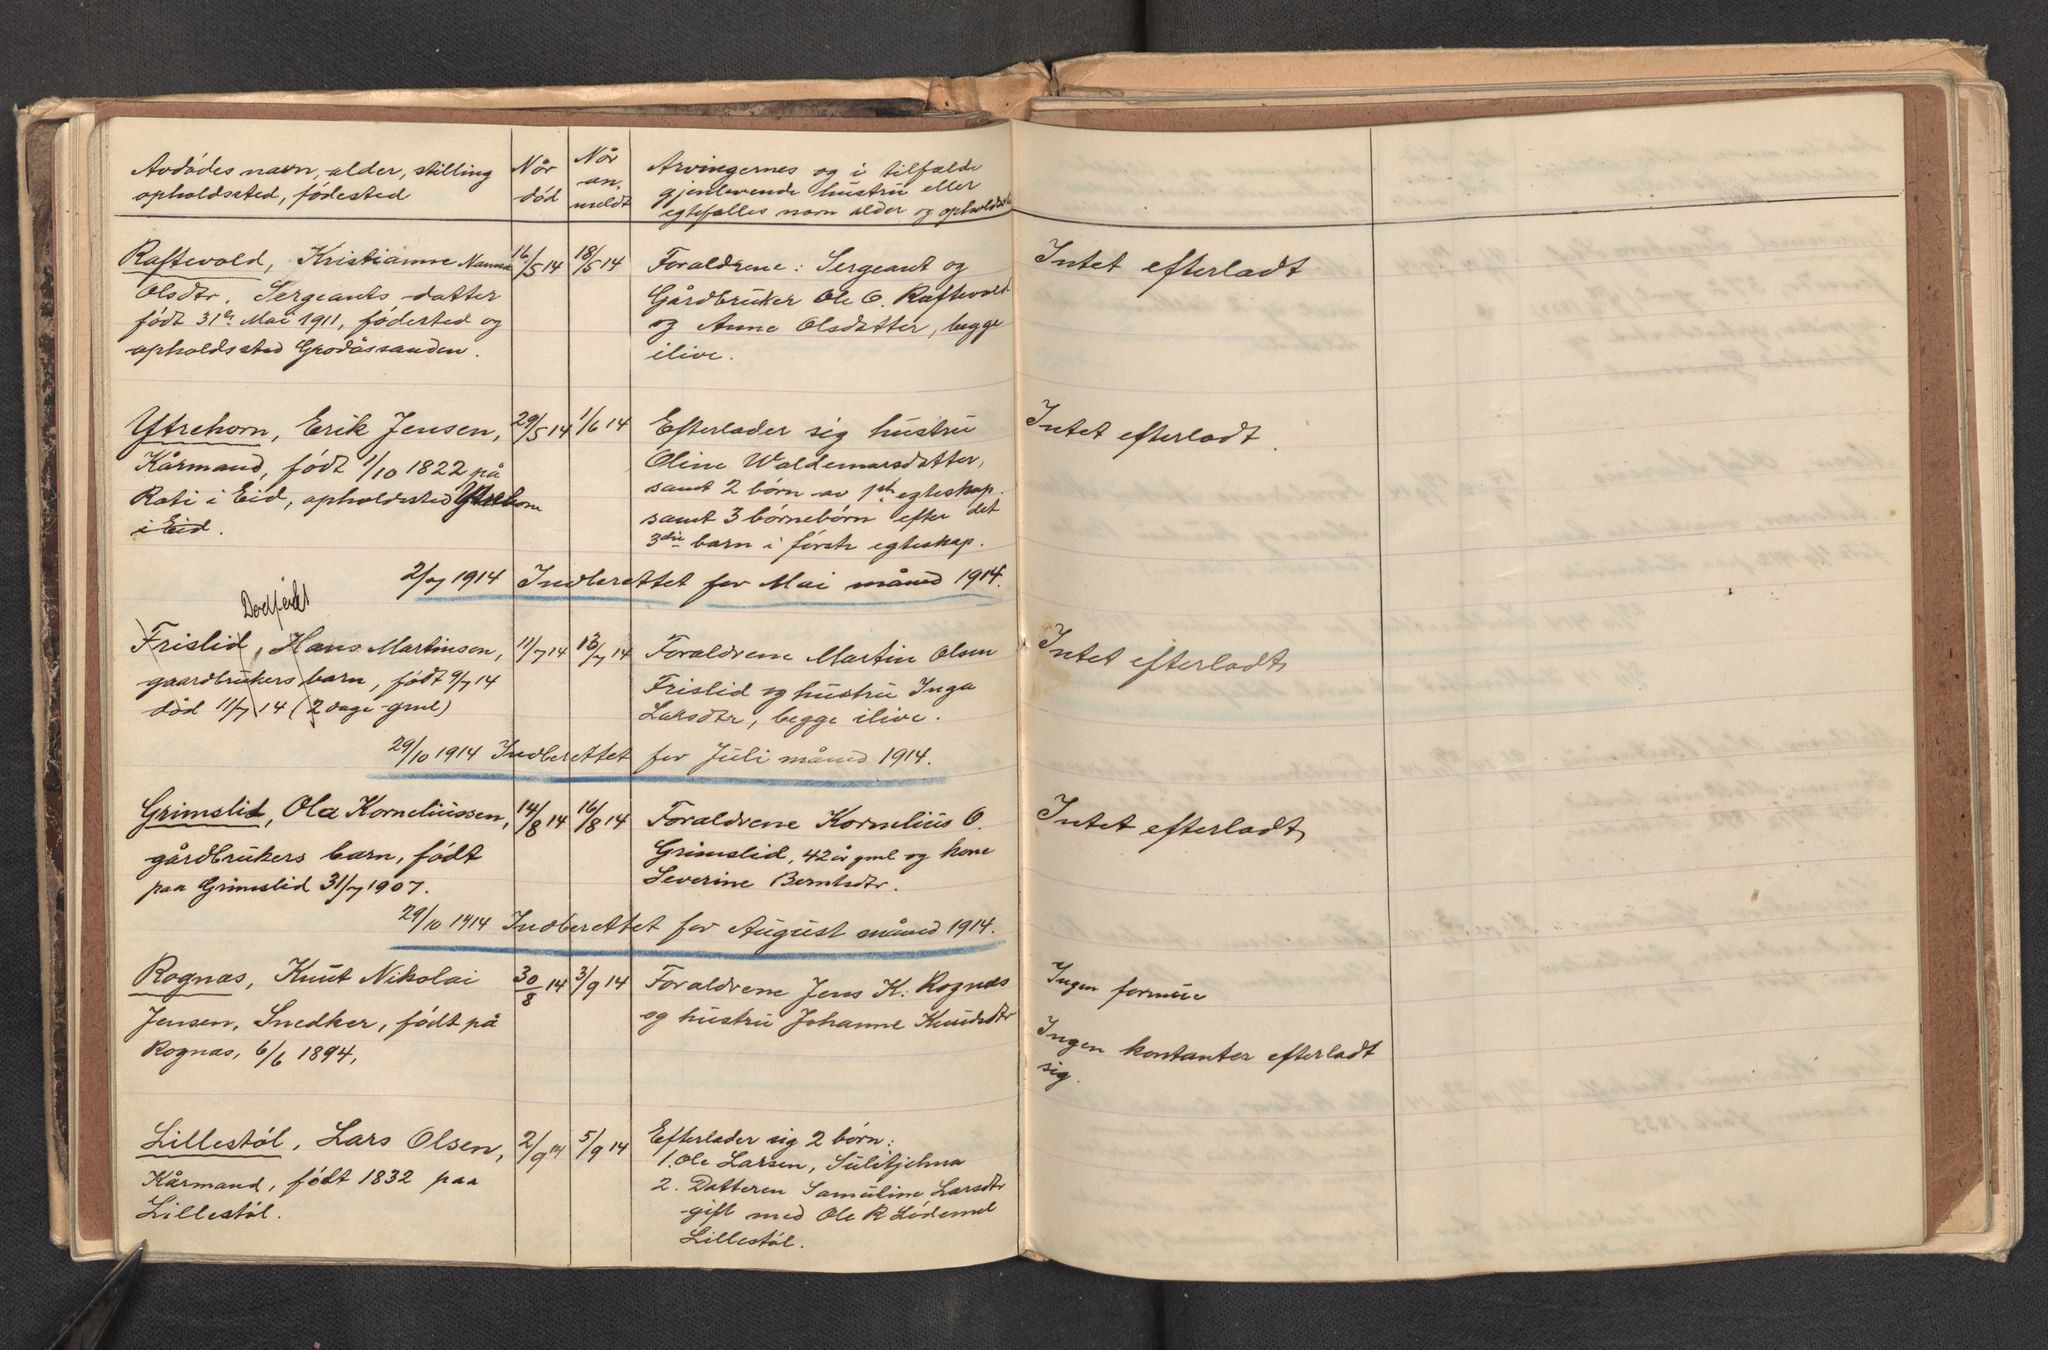 Avdødes navn, alder, stilling
opholdssted, fødested
Når
død
Når
an,
meldt
Arvingernes og i tilfælde
gjenlevende hustru eller
egtefælles navn alder og opholdsst
Raftevold, Kristianne Nanna
Olsdtr. Sergeants datter
født 31te Mai 1911, fødested og
opholdssted Grodåssanden.
16/5 14
18/5 14
Foraldrene: Sergeant og
Gårdbruker Ole O. Raftevold
og Anne Olsdatter, begge
ilive.
Intet efterladt
Ytrehorn, Erik Jensen,
Kårmand, født 1/10 1822 på
Rati i Eid, opholdssted Ytrehorn
i Eid.
29/5 14
1/6 14
Efterlader sig hustru
Oline Waldemarsdatter,
samt 2 børn av 1ste egteskap.
samt 3 børnebørn efter det
3die barn i første egteskap.
Intet efterladt.
2/7 1914 Indberettet for Mai måned 1914.
Dødfødt
Frislid, Hans Martinsen,
gaardbrukers barn, født 9/7 14
død 11/7 14 (2 dage gml)
11/7 14
13/7 14
Foraldrene Martin Olsen
Frislid og hustru Inga
Larsdtr, begge ilive.
Intet efterladt
29/10 1914 Indberettet for Juli måned 1914.
Grimslid, Ola Korneliussen,
gårdbrukers barn, født
paa Grimslid 31/7 1907.
14/8 14
16/8 14
Foraldrene Kornelius O.
Grimslid, 42 år gml og kone
Severine Berntsdtr.
Intet efterladt
29/10 1914 Indberettet for August måned 1914.
Rognas, Knut Nikolai
Jensen, Snedker, født på
Rognas, 6/6 1894,
30/8 14
3/9 14
Foraldrene Jens K. Rognas
og hustru Johanne Knudsdtr
Ingen formue
Ingen kontanter efterladt
sig.
Lillestøl, Lars Olsen,
Kårmand, født 1832 paa
Lillestøl.
2/9 14
5/9 14
Efterlader sig 2 børn:
1. Ole Larsen, Sulitjelma
2. Datteren Samuline Larsdtr
gift med Ole R Lødemel
Lillestøl.